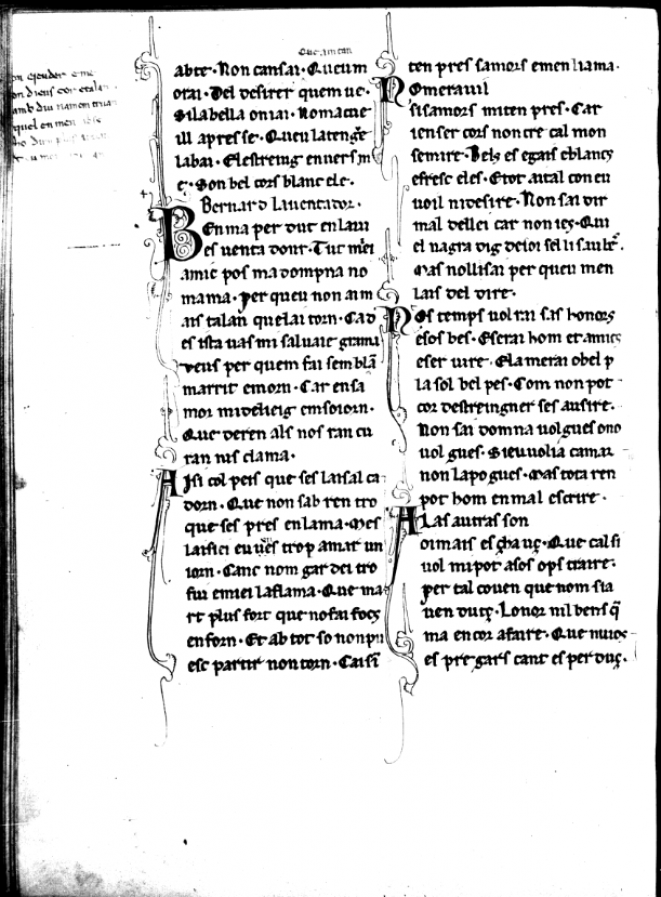 abte·Non cansai·Queum
orai·Del desirer quem ue·
Silabella on iai·Nomacue
ill apres se·Queu latengr̃e
labai·Elestreing en uers m
e·Son bel cors blanc ele·
Bernard Lauentador·
BEnma per dut en lau
es uenta dour·Tut mei
amic pos ma dompna no
mama·Per queu non aim
ais talan quelai torn·Cad
es ista uas mi saluaie grama
ueus per quem fai sembla̅
marrit emorn·Car ensa
mor mi deleig em soiorn·
Que deren als nos ran cu
ran nis clama·
AJsi col peis que ses laisal ca
dorn·Que non sab ren tro
que ses pres en lama·Mes
laisiei eu ues trop amar un
iorn·Canc nom gar dei tro
fui enmei la flama·Que ma
rt plus fort que nofai focs
en forn·Et ab tot so non pu
esc partir non torn·Caisi
ten pres samors emen liama·
NOmerauil
sisamors mi ten pres·Car
ienser cors non cre cal mon
semire·Bels es egais eblancs
efresc eles·Etot aital con eu
uoil nidesire·Non sai dir
mal dellei car non ies·Qui
el nagra dig deioi sel li saubr̃·
Mas nollisai per queu men
lais del dire·
NOs temps uol rai sas honors
esos bes·Eserai hom et amics
eser uire·Elamerai obel p
la sol bel pes·Com non pot
cor destreingner ses ausire·
Non sai domna uolgues ono
uol gues·Sieuuolia camar
non la pogues·Mas tota ren
pot hom en mal escrire·
ALas autras son
oimais eschauç·Que cal si
uol mi pot asos ops traire·
per tal couen que nom sia
uen duç·Lonor nil bens q̃
ma en cor afaire·Que nuios
es pre gars cant es per duç·